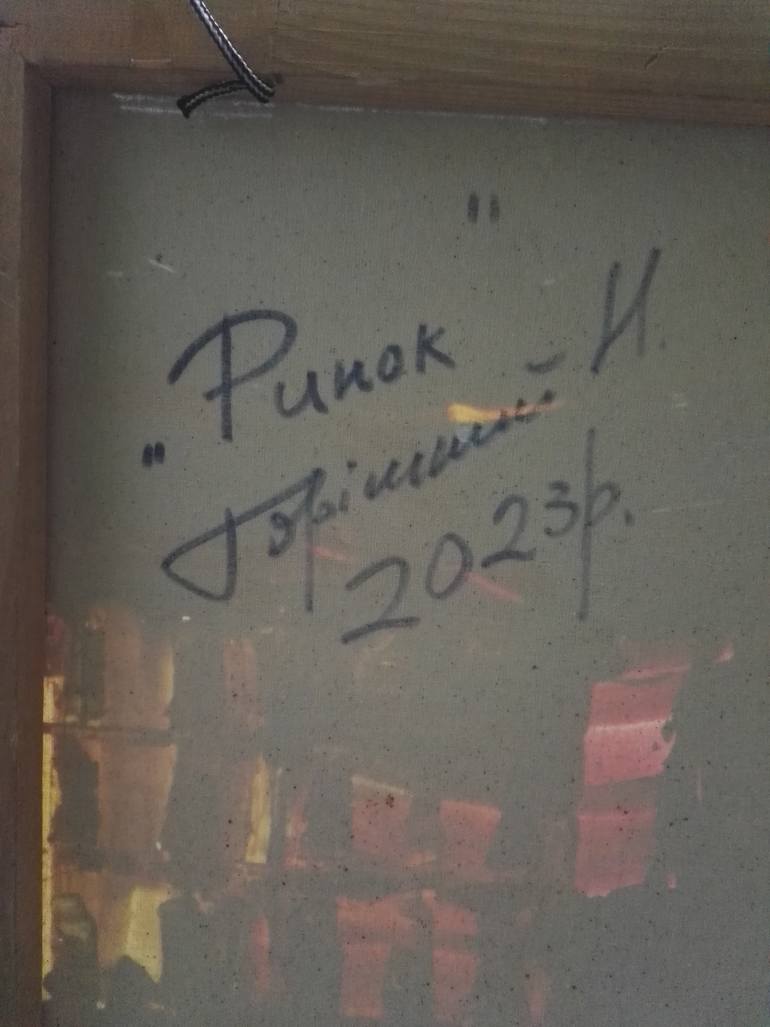 „Ринок" Н.
Горішний
2023р.